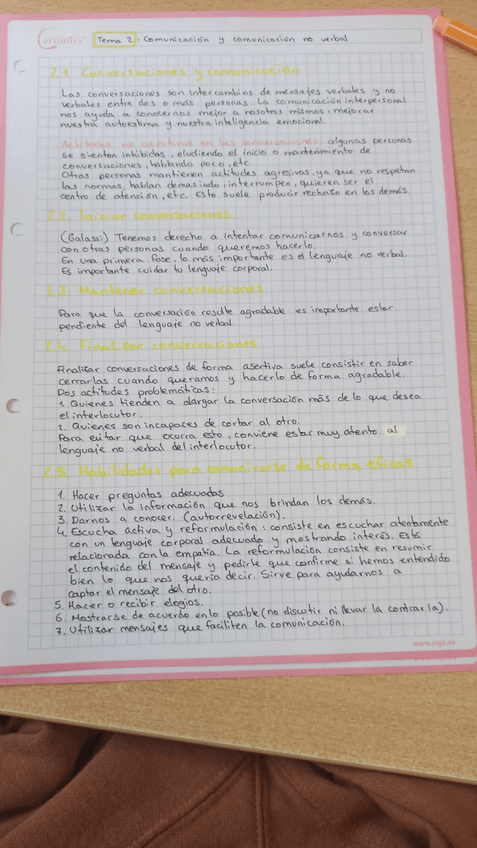 Cervantes
Tema 2: Comunicación y comunicación no verbal
2.1. Conversaciones y comunicación
Las conversaciones son intercambios de mensajes verbales y no
verbales entre dos o más personas. La comunicación interpersonal
nos ayuda a conocernos mejor a nosotros mismos, mejorar
nuestra autoestima y nuestra inteligencia emocional.
Actitudes no asertivas en las conversaciones: algunas personas
se sienten inhibidas, eludiendo el inicio o mantenimiento de
conversaciones, hablando poco, etc.
Otras personas mantienen actitudes agresivas, ya que no respetan
las normas, hablan demasiado, interrumpen, quieren ser el
centro de atención, etc. Esto suele producir rechazo en los demás.
2.2. Iniciar conversaciones
(Galassi) Tenemos derecho a intentar comunicarnos y conversar
con otras personas cuando queremos hacerlo.
En una primera fase, lo más importante es el lenguaje no verbal.
Es importante cuidar tu lenguaje corporal.
2.3. Mantener conversaciones
Para que la conversación resulte agradable es importante estar
pendiente del lenguaje no verbal.
2.4. Finalizar conversaciones
Finalizar conversaciones de forma asertiva suele consistir en saber
cerrarlas cuando queramos y hacerlo de forma agradable.
Dos actitudes problemáticas:
1. Quienes tienden a alargar la conversación más de lo que desea
el interlocutor.
2. Quienes son incapaces de cortar al otro.
Para evitar que ocurra esto, conviene estar muy atento al
lenguaje no verbal del interlocutor.
2.5. Habilidades para comunicarse de forma eficaz
1. Hacer preguntas adecuadas
2. Utilizar la información que nos brindan los demás.
3. Darnos a conocer. (autorrevelación).
4. Escucha activa y reformulación: consiste en escuchar atentamente
con un lenguaje corporal adecuado y mostrando interés. Está
relacionada con la empatía. La reformulación consiste en resumir
el contenido del mensaje y pedirle que confirme si hemos entendido
bien lo que nos quería decir. Sirve para ayudarnos a
captar el mensaje del otro.
5. Hacer o recibir elogios.
6. Mostrarse de acuerdo en lo posible (no discutir ni llevar la contraria).
7. Utilizar mensajes que faciliten la comunicación.
www.mps.es